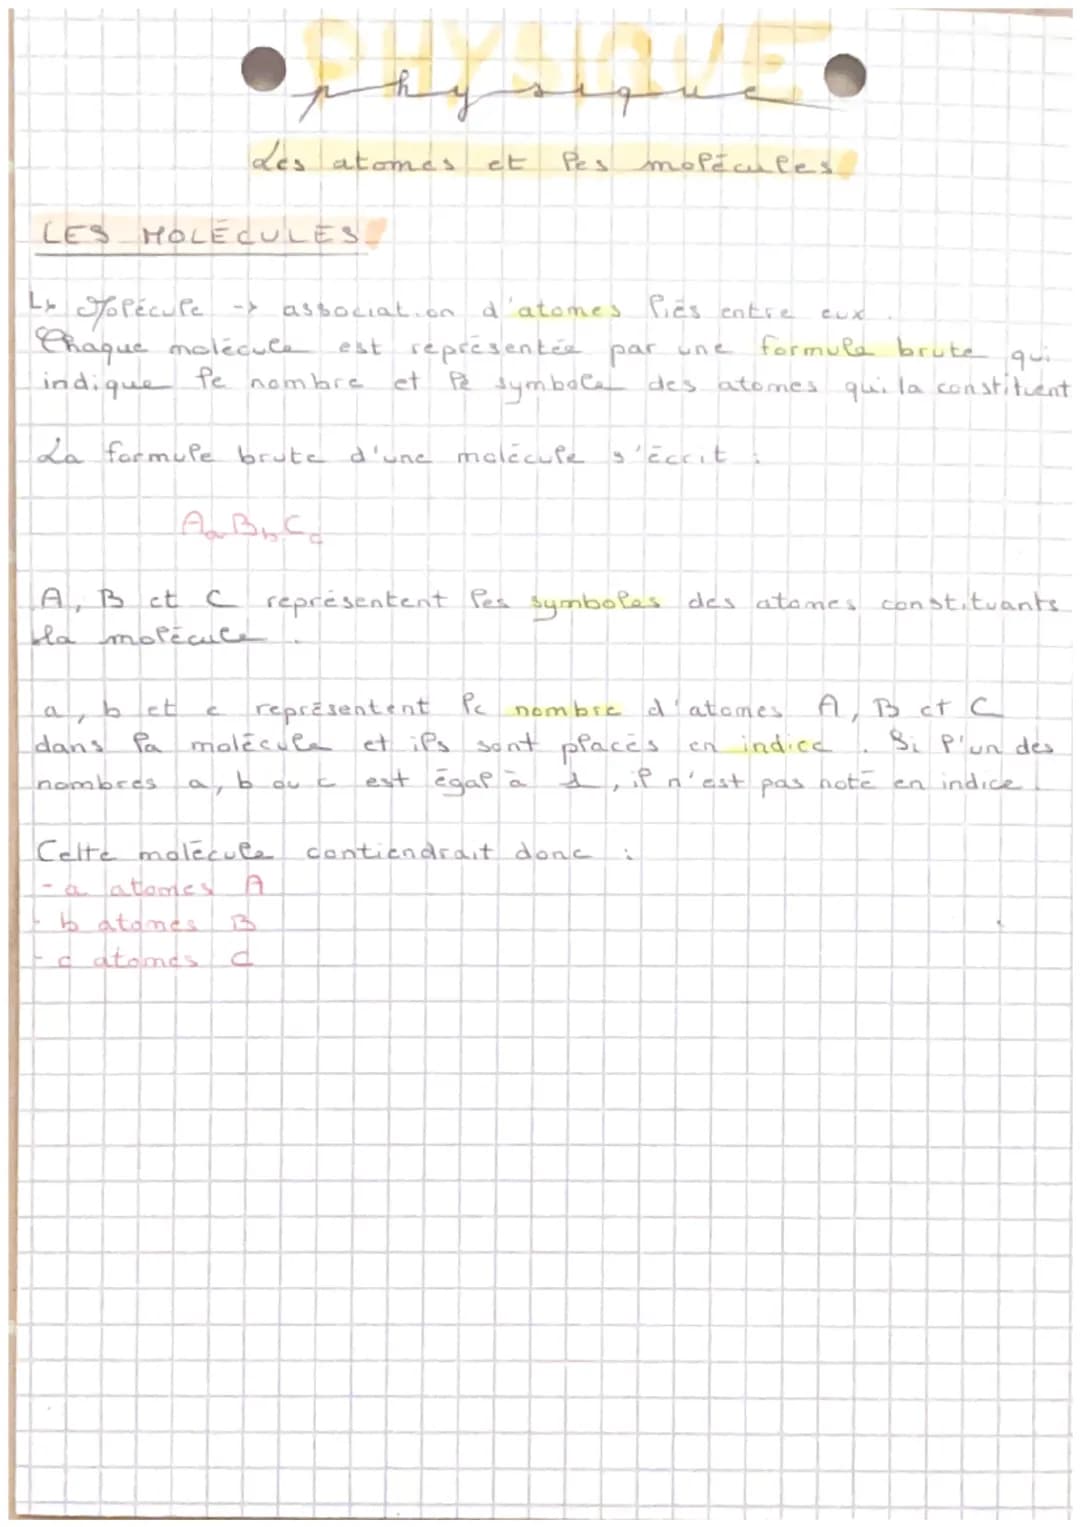 PHYSIQUE
physique
Les atomes et les molécules
LES MOLÉCULES
L> Molécule -> association d'atomes liés entre eux.
Chaque molécule est représentée par une formule brute qui
indique le nombre et le symbole des atomes qui la constituent
La formule brute d'une molécule s'écrit :
AₐB_bC_c
A, B et C représentent les symboles des atomes constituants
la molécule.
a, b et c représentent le nombre d'atomes A, B et C
dans la molécule et ils sont placés en indice. Si l'un des
nombres a, b ou c est égal à 1, il n'est pas noté en indice.
Cette molécule contiendrait donc :
- a atomes A
- b atomes B
- c atomes C